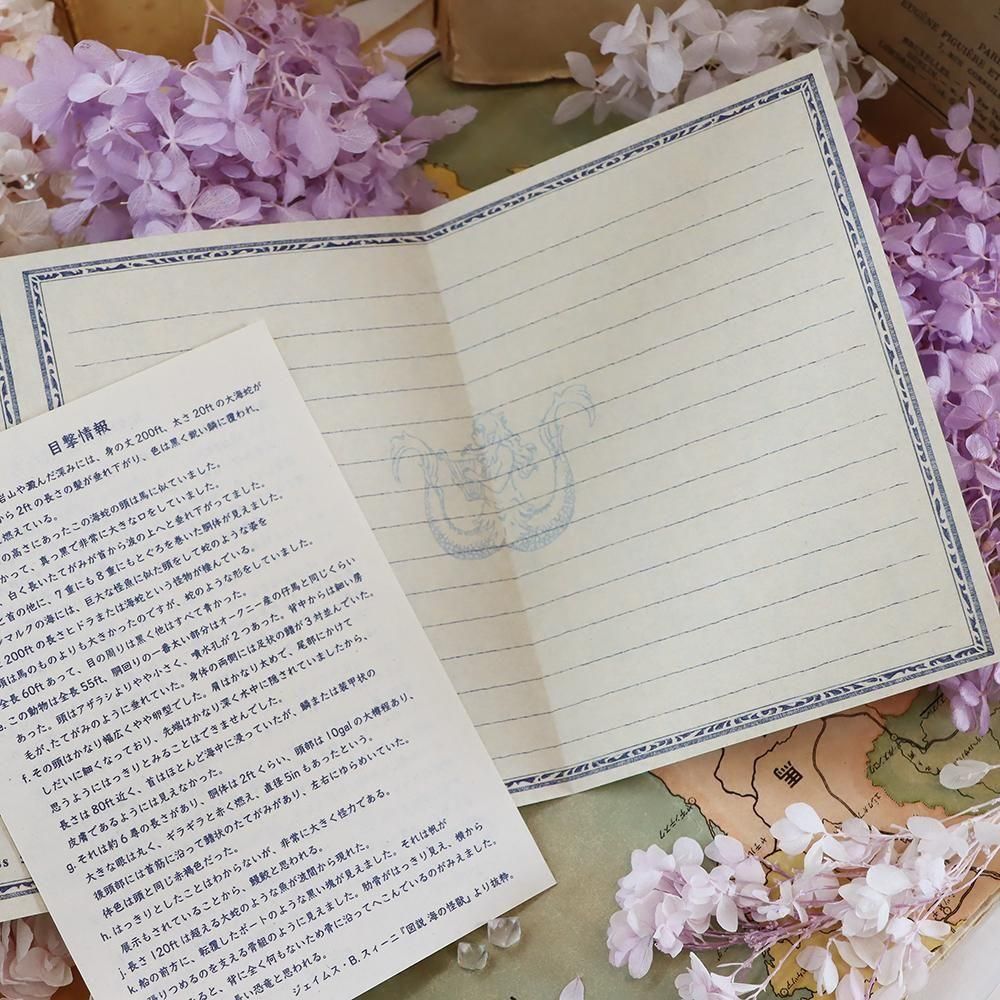 EUGÈNE FIGUIÈRE
PAR
7, RUE COR
BRUXELLES
目撃情報
岩山や澱んだ深みには、身の丈200ft、太さ20ftの大海蛇が
から2ftの長さの髪が垂れ下がり、色は黒く鋭い鱗に覆われ、
燃えている。
の高さにあったこの海蛇の頭は馬に似ていました。
かって、真っ黒で非常に大きな口をしていました。
白く長いたてがみが首から波の上へと垂れ下がってました。
と首の他に、7重にも8重にもとぐろを巻いた胴体が見えました。
マルクの海には、巨大な怪魚に似た頭をして蛇のような姿を
200ftの長さとドラまたは海蛇という怪物が棲んでいる。
頭は馬のものよりも大きかったのですが、蛇のような形をしていました。
全長60ftあって、目の周りは黒く他はすべて青かった。
e. この動物は全長55ft、胴回りの一番太い部分はオークニー産の仔馬と同じくらい
あった。頭はアザラシよりやや小さく、噴水孔が2つあった。背中からは細い房
毛が、たてがみのように垂れていた。身体の両側には足状の鰭が3対並んでいた。
f. その頭はかなり幅広くやや卵型でした。肩はかなり太めで、尾部にかけて
しだいに細くなっており、先端はかなり深く水中に隠されていましたから、
思うようにはっきりとみることはできませんでした。
長さは80ft近く、首はほとんど海中に浸っていたが、鱗または装甲状の
皮膚であるようには見えなかった。
g. それは約6尋の長さがあり、胴体は2ftくらい、頭部は10galの大樽程あり、
大きな眼は丸く、ギラギラと赤く燃え、直径5inもあったという。
後頭部には首筋に沿って鰭状のたてがみがあり、左右にゆらめいていた。
体色は頭と同じ赤褐色だった。
h. はっきりとしたことはわからないが、非常に大きく怪力である。
展示もされていることから、饅鮫と思われる。
j. 長さ120ftは超える大蛇のような魚が波間から現れた。
k. 船の前方に、転覆したボートのような黒い塊が見えました。それは帆が
張りつめるのを支える骨組のように見えました。肋骨がはっきり見え、横から
ると、背に全く何もないため骨に沿ってへこんでいるのがみえました。
長い恐竜と思われる。
ジェイムス・B.スィーニ『図説 海の怪獣』より抜粋。
馬